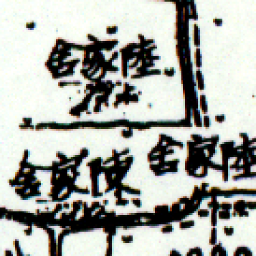 陸家舍
陸家舍
陳家舍